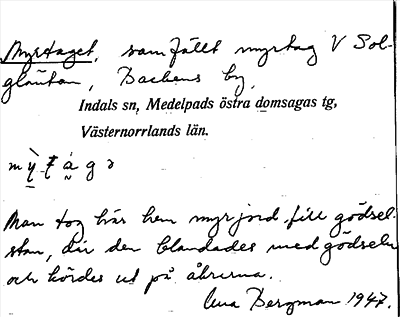 Myrtaget, samfällt myrtag V Sol-
gläntan, Backens by,
Indals sn, Medelpads östra domsagas tg,
Västernorrlands län.
Man tog här hem myrjord till gödsel-
stan, där den blandades med gödseln
och kördes ut på åkrarna.
Bergman 1947.